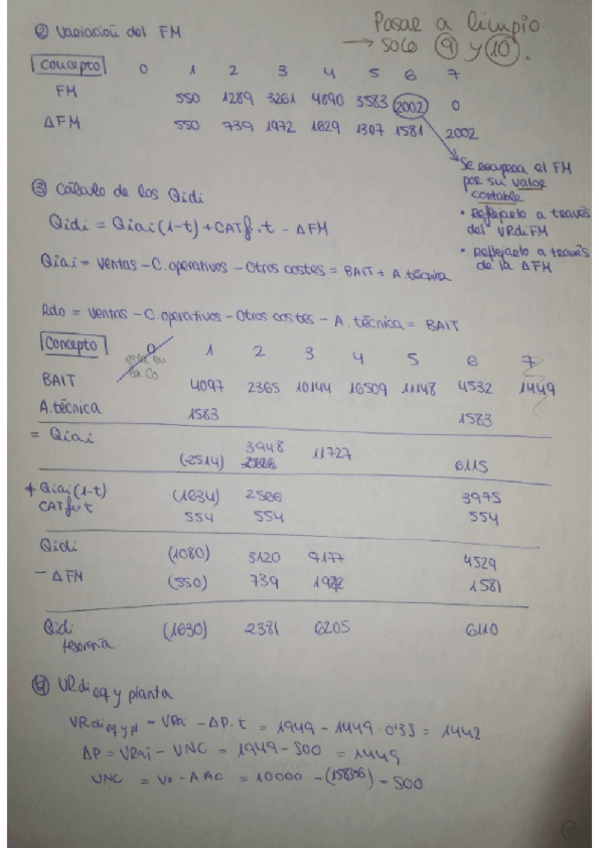 Pasar a limpio
→ solo ⑨ y ⑩.
② Variación del FM
Concepto 0 1 2 3 4 5 6 7
FM 550 1289 3261 4890 3583 2002 0
ΔFM 550 739 1972 1629 1307 1581 2002
Se recupera el FM
por su valor
contable
• Reflejarlo a través
del VRdiFM
• Reflejarlo a través
de la ΔFM
③ Cálculo de los Qidi
Qidi = Qiai(1-t) + CATf.t - ΔFM
Qiai = Ventas - C. operativos - Otros costes = BAIT + A. técnica
Rdo = Ventas - C. operativos - Otros costes - A. técnica = BAIT
Concepto 0 1 2 3 4 5 6 7
está en
la Co
BAIT 4097 2365 10144 16509 11148 4532 1449
A. técnica 1583 1583
= Qiai (2514) 3948 11727 6115
+ Qiai(1-t) (1634) 2566 3975
CATf.t 554 554 554
Qidi (1080) 3120 9177 4529
- ΔFM (550) 739 1972 1581
Qidi (1630) 2381 6205 6110
tesorería
④ VRdi eq y planta
VRdi eq y pl = VRai - ΔP.t = 1949 - 1449 · 0'35 = 1442
ΔP = VRai - VNC = 1949 - 500 = 1449
VNC = Vo - AAC = 10000 - (1583·6) = 500